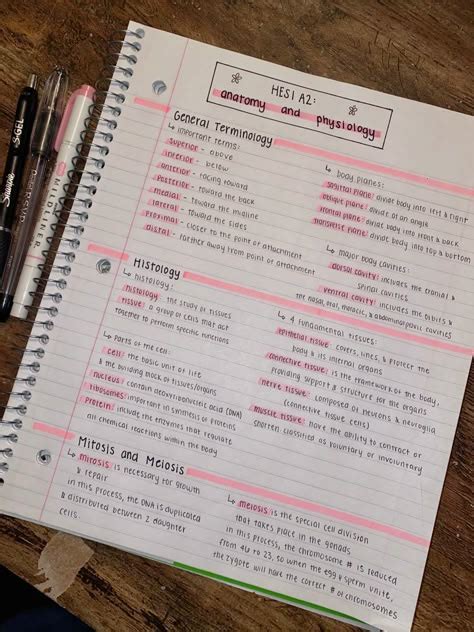 HESI A2:
anatomy and physiology
General Terminology
↳ important terms:
superior - above
inferior - below
anterior - facing toward
posterior - toward the back
medial - toward the midline
lateral - toward the sides
proximal - closer to the point of attachment
distal - farther away from point of attachment
↳ body planes:
sagittal plane: divide body into left & right
oblique plane: divide at an angle
coronal plane: divide body into front & back
transverse plane: divide body into top & bottom
↳ major body cavities:
dorsal cavity: includes the cranial &
spinal cavities
ventral cavity: includes the orbits &
the nasal, oral, thoracic, & abdominopelvic cavities
Histology
↳ histology:
histology: the study of tissues
tissue: a group of cells that act
together to perform specific functions
↳ parts of the cell:
cell: the basic unit of life
& the building block of tissues/organs
nucleus: contain deoxyribonucleic acid (DNA)
ribosomes: important in synthesis of proteins
protein: include the enzymes that regulate
all chemical reactions within the body
↳ 4 fundamental tissues:
epithelial tissue: covers, lines, & protect the
body & its internal organs
connective tissue: is the framework of the body,
providing support & structure for the organs
nerve tissue: composed of neurons & neuroglia
(connective tissue cells)
muscle tissue: have the ability to contract or
shorten. classified as voluntary or involuntary
Mitosis and Meiosis
↳ mitosis is necessary for growth
& repair
in this process, the DNA is duplicated
& distributed between 2 daughter
cells.
↳ meiosis is the special cell division
that takes place in the gonads
in this process, the chromosome # is reduced
from 46 to 23, so when the egg & sperm unite,
the zygote will have the correct # of chromosomes
Sharpie
S·GEL
MILDLINER